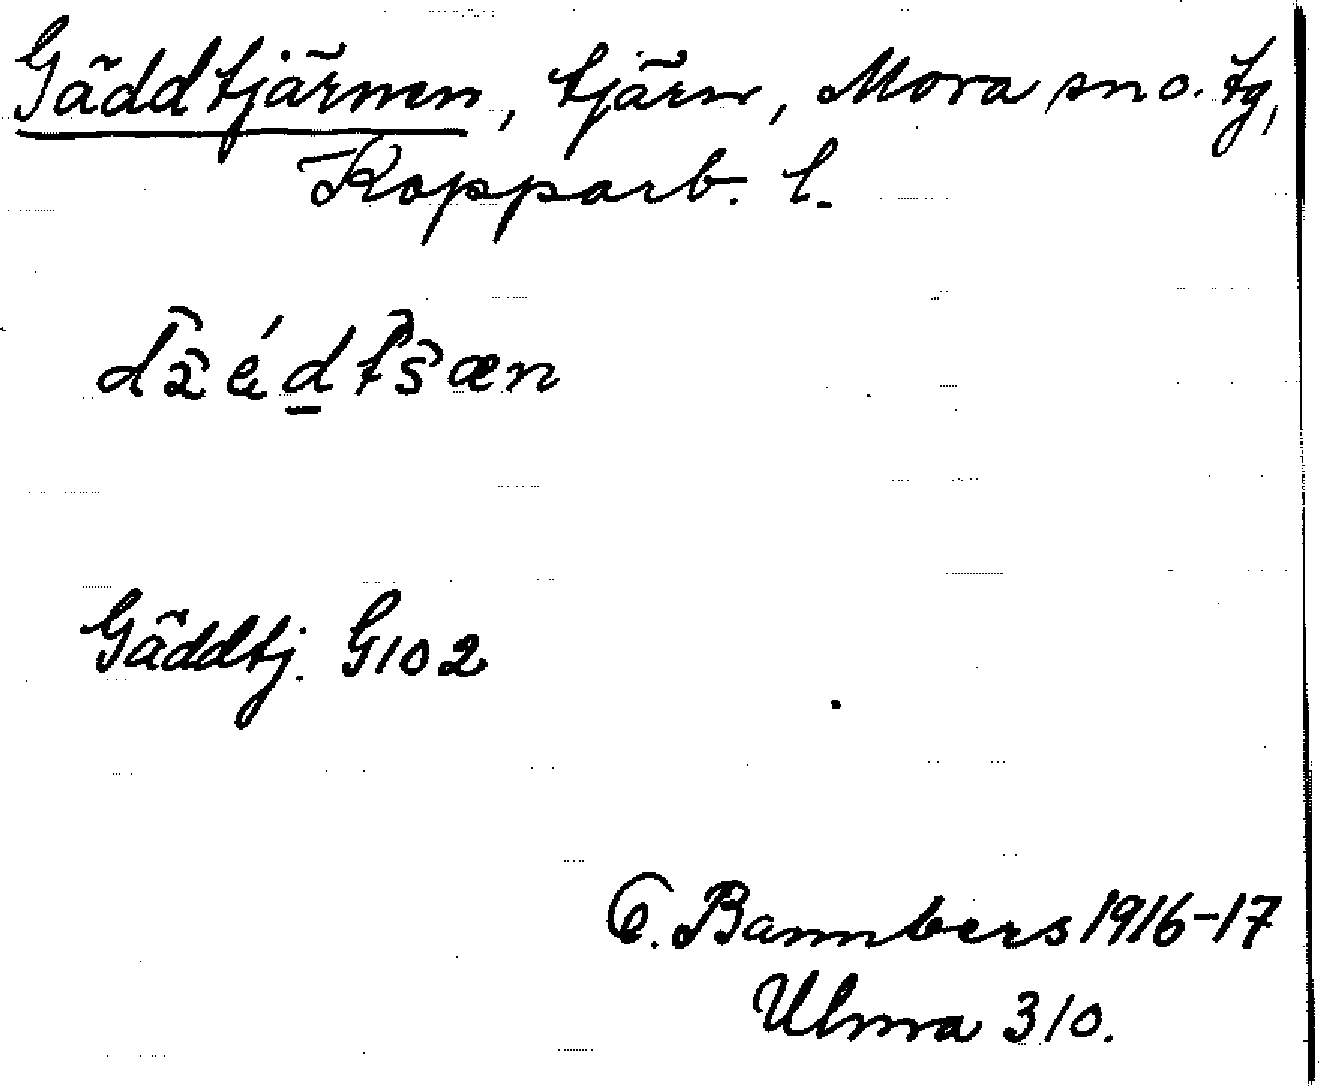 Gäddtjärnen, tjärn, Mora sn o. tg,
Kopparb. l.
Gäddtj. G102
O. Bannbers 1916-17
Ulma 310.